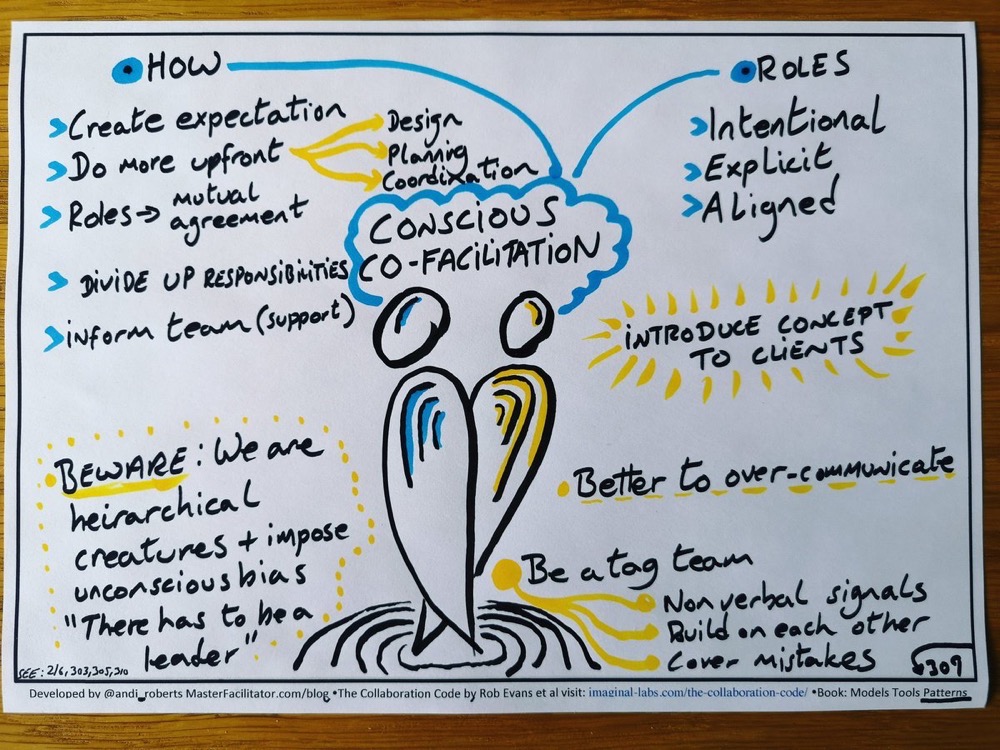 HOW
Create expectation
Do more upfront
Design
Planning
Coordination
Roles → mutual
agreement
DIVIDE UP RESPONSIBILITIES
inform team (support)
CONSCIOUS
CO-FACILITATION
ROLES
Intentional
Explicit
Aligned
INTRODUCE CONCEPT
TO CLIENTS
BEWARE: We are
heirarchical
creatures + impose
unconscious bias
"There has to be a
leader"
Better to over-communicate
Be a tag team
Non verbal signals
Build on each other
Cover mistakes
SEE: 2/6, 303, 305, 310
309
Developed by @andi_roberts MasterFacilitator.com/blog •The Collaboration Code by Rob Evans et al visit: imaginal-labs.com/the-collaboration-code/ •Book: Models Tools Patterns